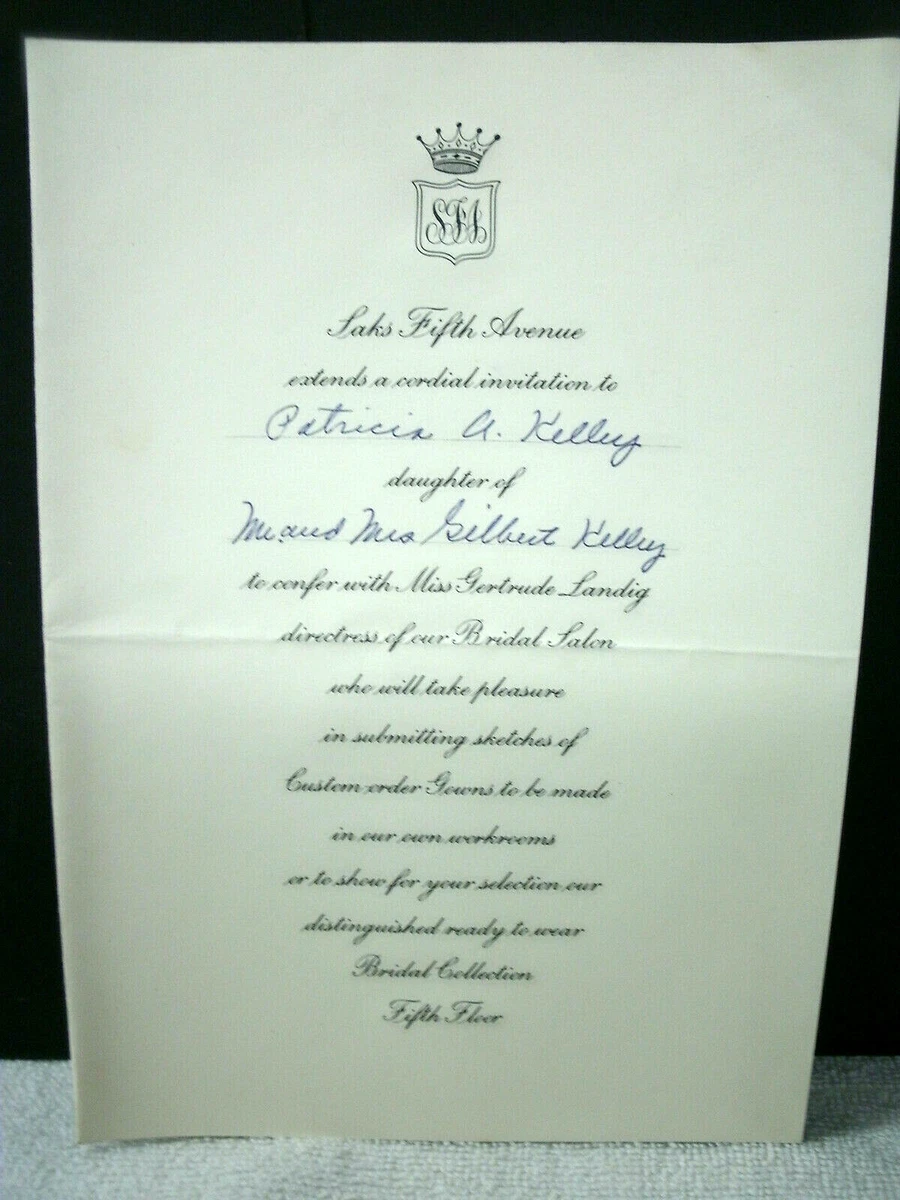 SFA
Saks Fifth Avenue
extends a cordial invitation to
Patricia A. Kelley
daughter of
Mr and Mrs Gilbert Kelley
to confer with Miss Gertrude Landig
directress of our Bridal Salon
who will take pleasure
in submitting sketches of
Custom-order Gowns to be made
in our own workrooms
or to show for your selection our
distinguished ready to wear
Bridal Collection
Fifth Floor